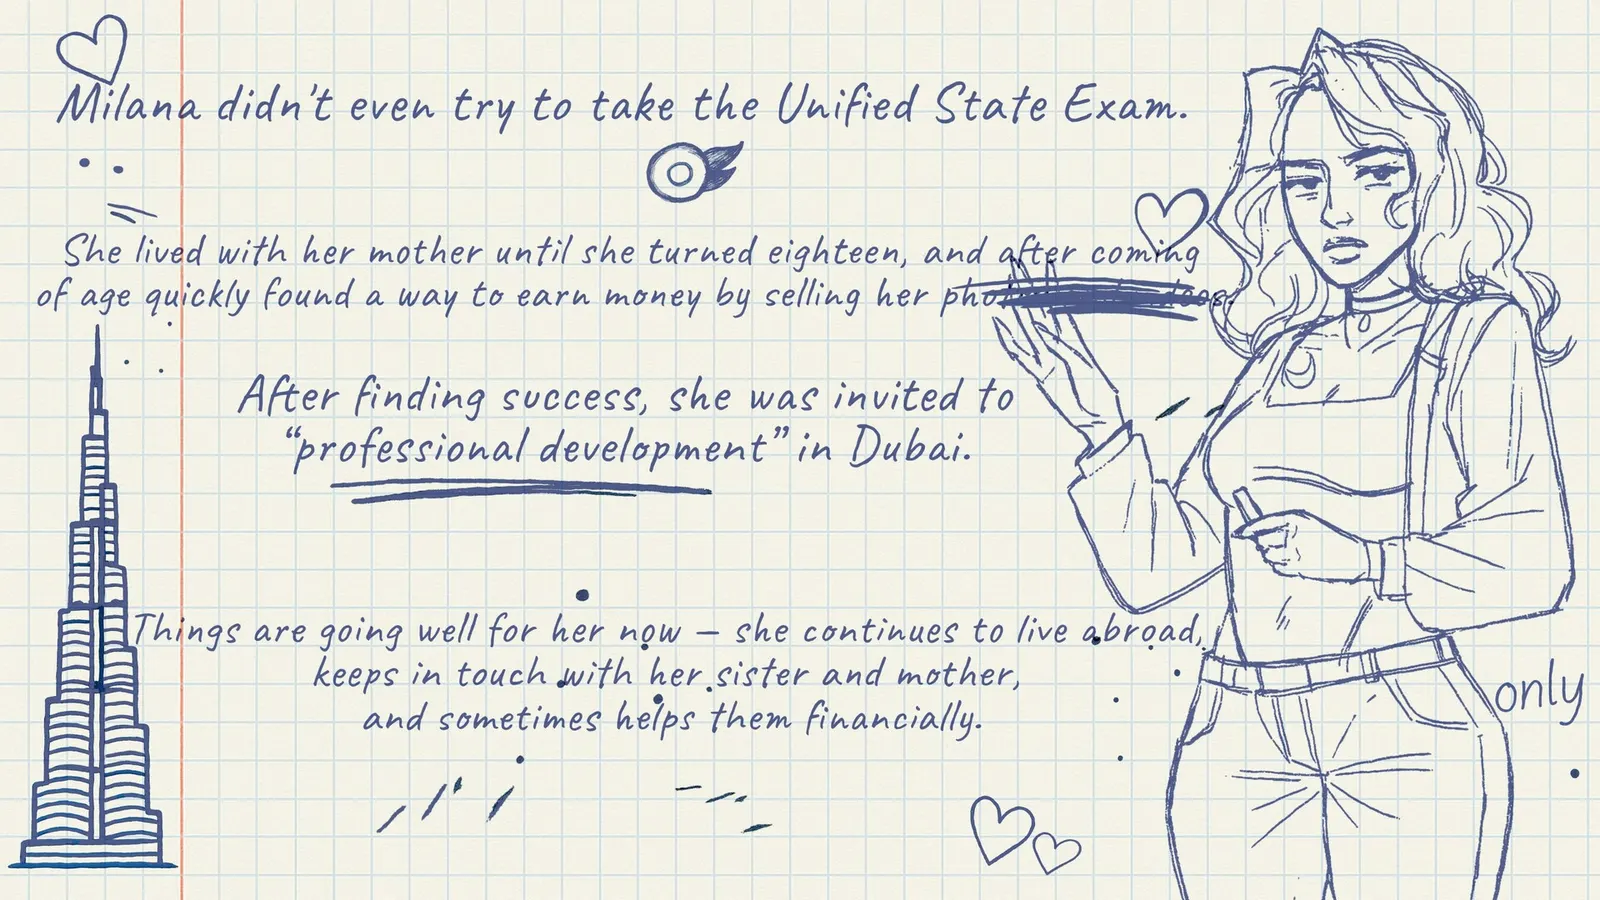 Milana didn't even try to take the Unified State Exam.
She lived with her mother until she turned eighteen, and after coming
of age quickly found a way to earn money by selling her
After finding success, she was invited to
“professional development” in Dubai.
Things are going well for her now – she continues to live abroad,
keeps in touch with her sister and mother,
and sometimes helps them financially.
only